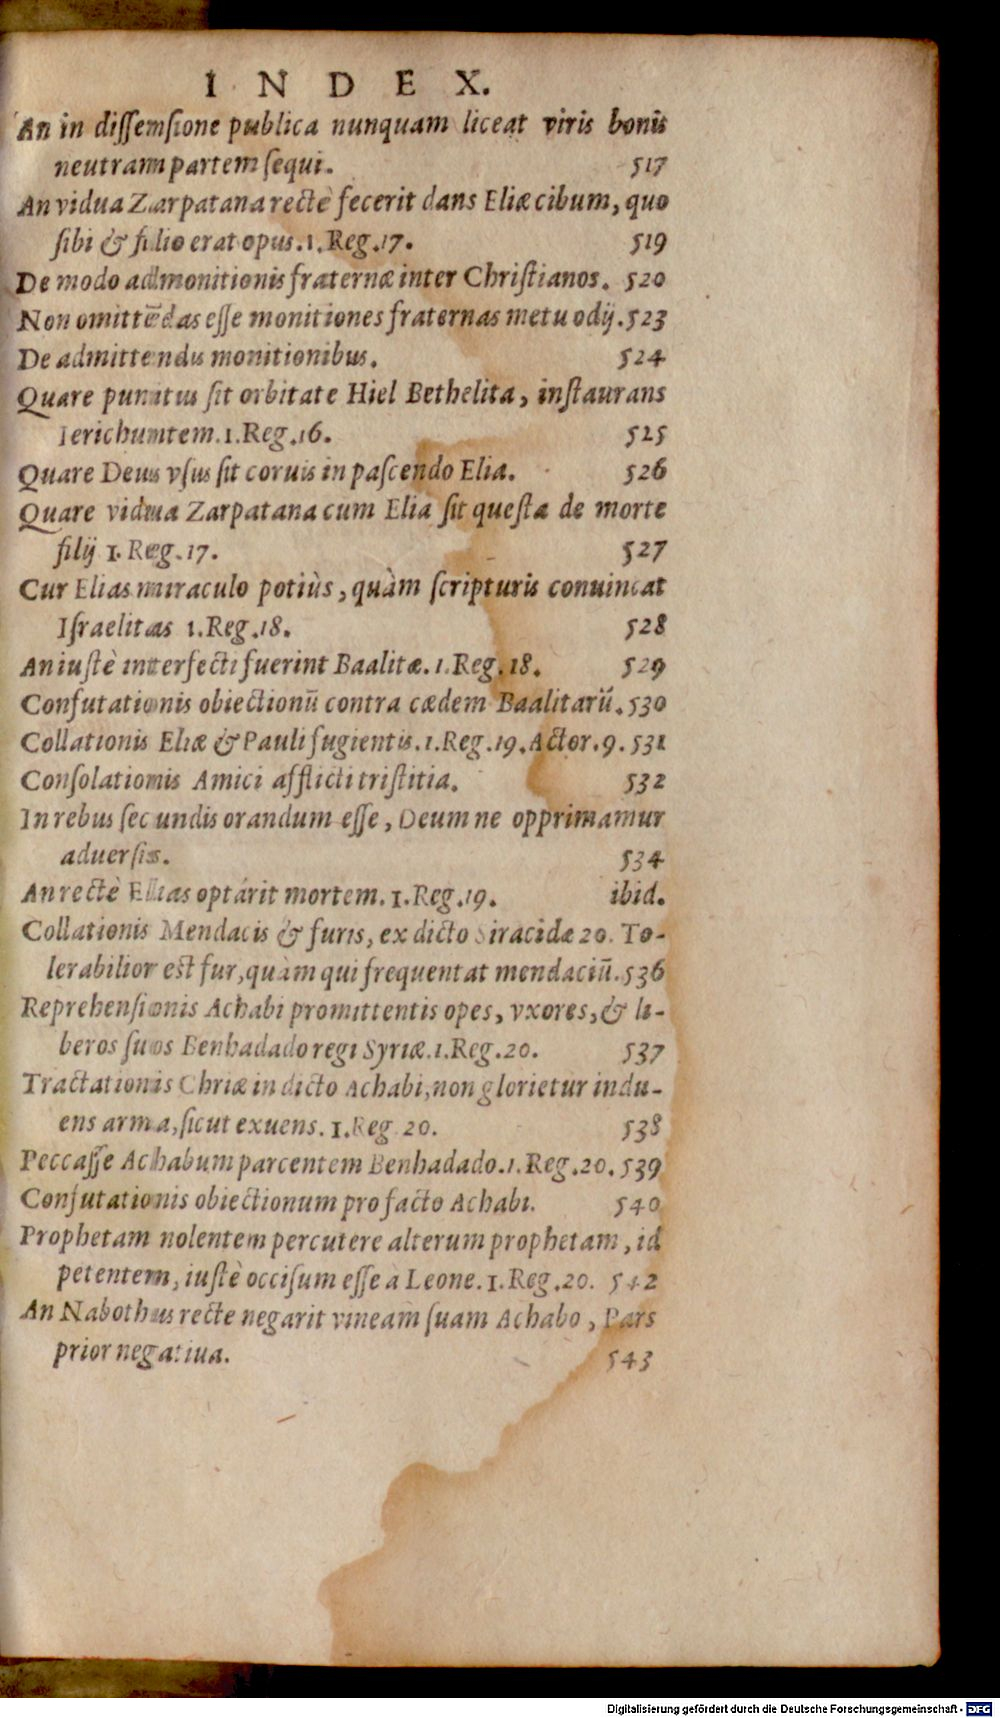 INDEX.
An in diſſemſione publica nunquam liceat viris bonis
neutram partem ſequi. 517
An vidua Zarpatana rectè fecerit dans Eliæ cibum, quo
ſibi & filio erat opus. 1. Reg. 17. 519
De modo admonitionis fraternæ inter Chriſtianos. 520
Non omittēdas eſſe monitiones fraternas metu odij. 523
De admittendis monitionibus. 524
Quare punitus ſit orbitate Hiel Bethelita, inſtaurans
Ierichuntem. 1. Reg. 16. 525
Quare Deus vſus ſit coruis in paſcendo Elia. 526
Quare vidua Zarpatana cum Elia ſit queſta de morte
filij 1. Reg. 17. 527
Cur Elias miraculo potiùs, quàm ſcripturis conuincat
Iſraelitas 1. Reg. 18. 528
An iuſtè interfecti fuerint Baalitæ. 1. Reg. 18. 529
Confutationis obiectionū contra cædem Baalitarū. 530
Collationis Eliæ & Pauli fugientis. 1. Reg. 19. Actor. 9. 531
Conſolationis Amici afflicti triſtitia. 532
In rebus ſecundis orandum eſſe, Deum ne opprimamur
aduerſis. 534
An rectè Elias optárit mortem. 1. Reg. 19. ibid.
Collationis Mendacis & furis, ex dicto Siracidæ 20. To-
lerabilior est fur, quàm qui frequentat mendaciū. 536
Reprehenſionis Achabi promittentis opes, vxores, & li-
beros ſuos Benhadado regi Syriæ. 1. Reg. 20. 537
Tractationis Chriæ in dicto Achabi, non glorietur indu-
ens arma, ſicut exuens. 1. Reg 20. 538
Peccaſſe Achabum parcentem Benhadado. 1. Reg. 20. 539
Confutationis obiectionum pro facto Achabi. 540
Prophetam nolentem percutere alterum prophetam, id
petentem, iuſtè occiſum eſſe à Leone. 1. Reg. 20. 542
An Nabothus recte negarit vineam ſuam Achabo, Pars
prior negatiua. 543
Digitalisierung gefördert durch die Deutsche Forschungsgemeinschaft - DFG